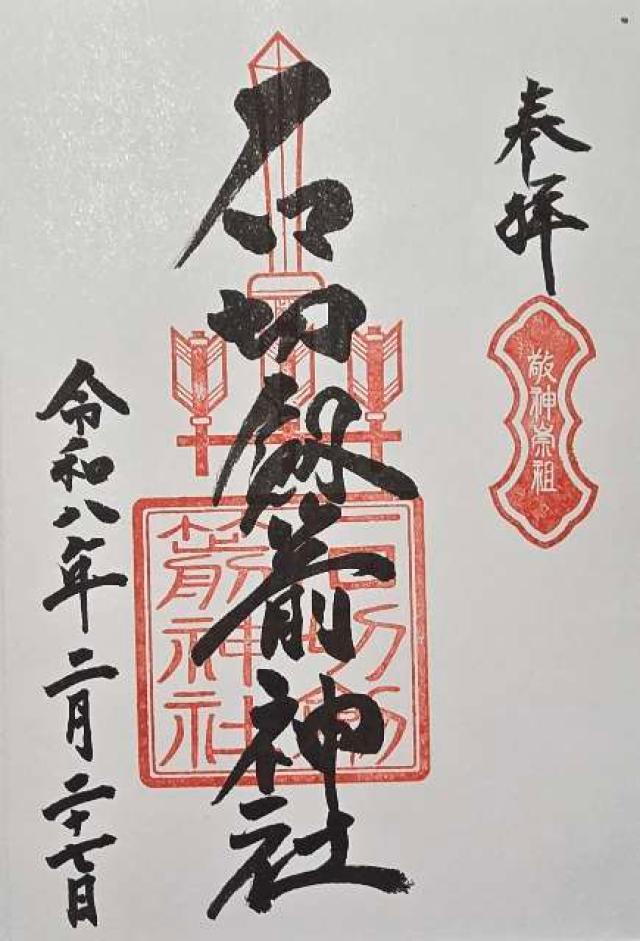 奉拝
敬神崇祖
石切劔箭神社
石切劔
箭神社
令和八年二月二十七日